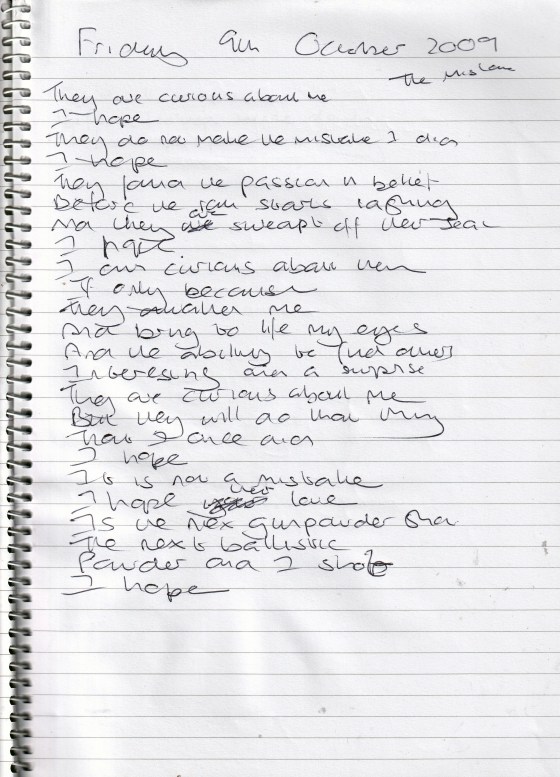 Friday 9th October 2009
The Mistake
They are curious about me
I hope
They do not make the mistake I did
I hope
They found the passion in belief
Before the rain starts
And they are sweapt off their
I hope
I am curious about them
If only because
They me
And bring to life my eyes
And the ability to find others
Interesting and a surprise
They are curious about me
But they will do that thing
That I once did
I hope
It is not a mistake
I hope their love
Is the next gunpowder
The next ballistic
Powder and I
I hope